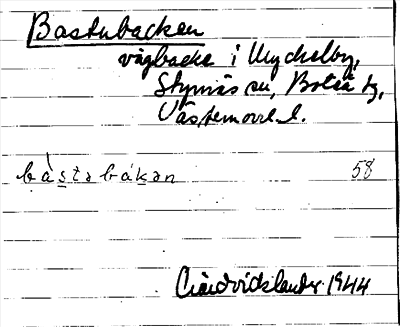 Bastubacken
vägbacke i Myckelby,
Styrnäs sn, Boteå tg,
Västernorrl. l.
bàstabákan 58
Lindvidslander 1944